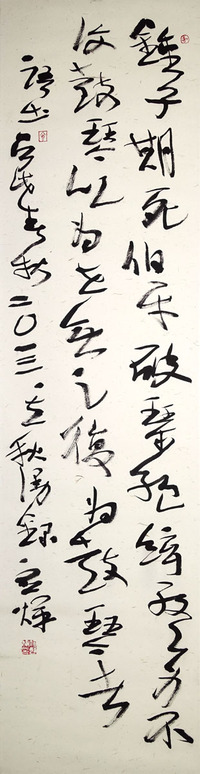 鍾子期死伯牙破琴絕絃終身不
復鼓琴以為世無足復為鼓琴者
語出呂氏春秋二〇一三立秋漫錄